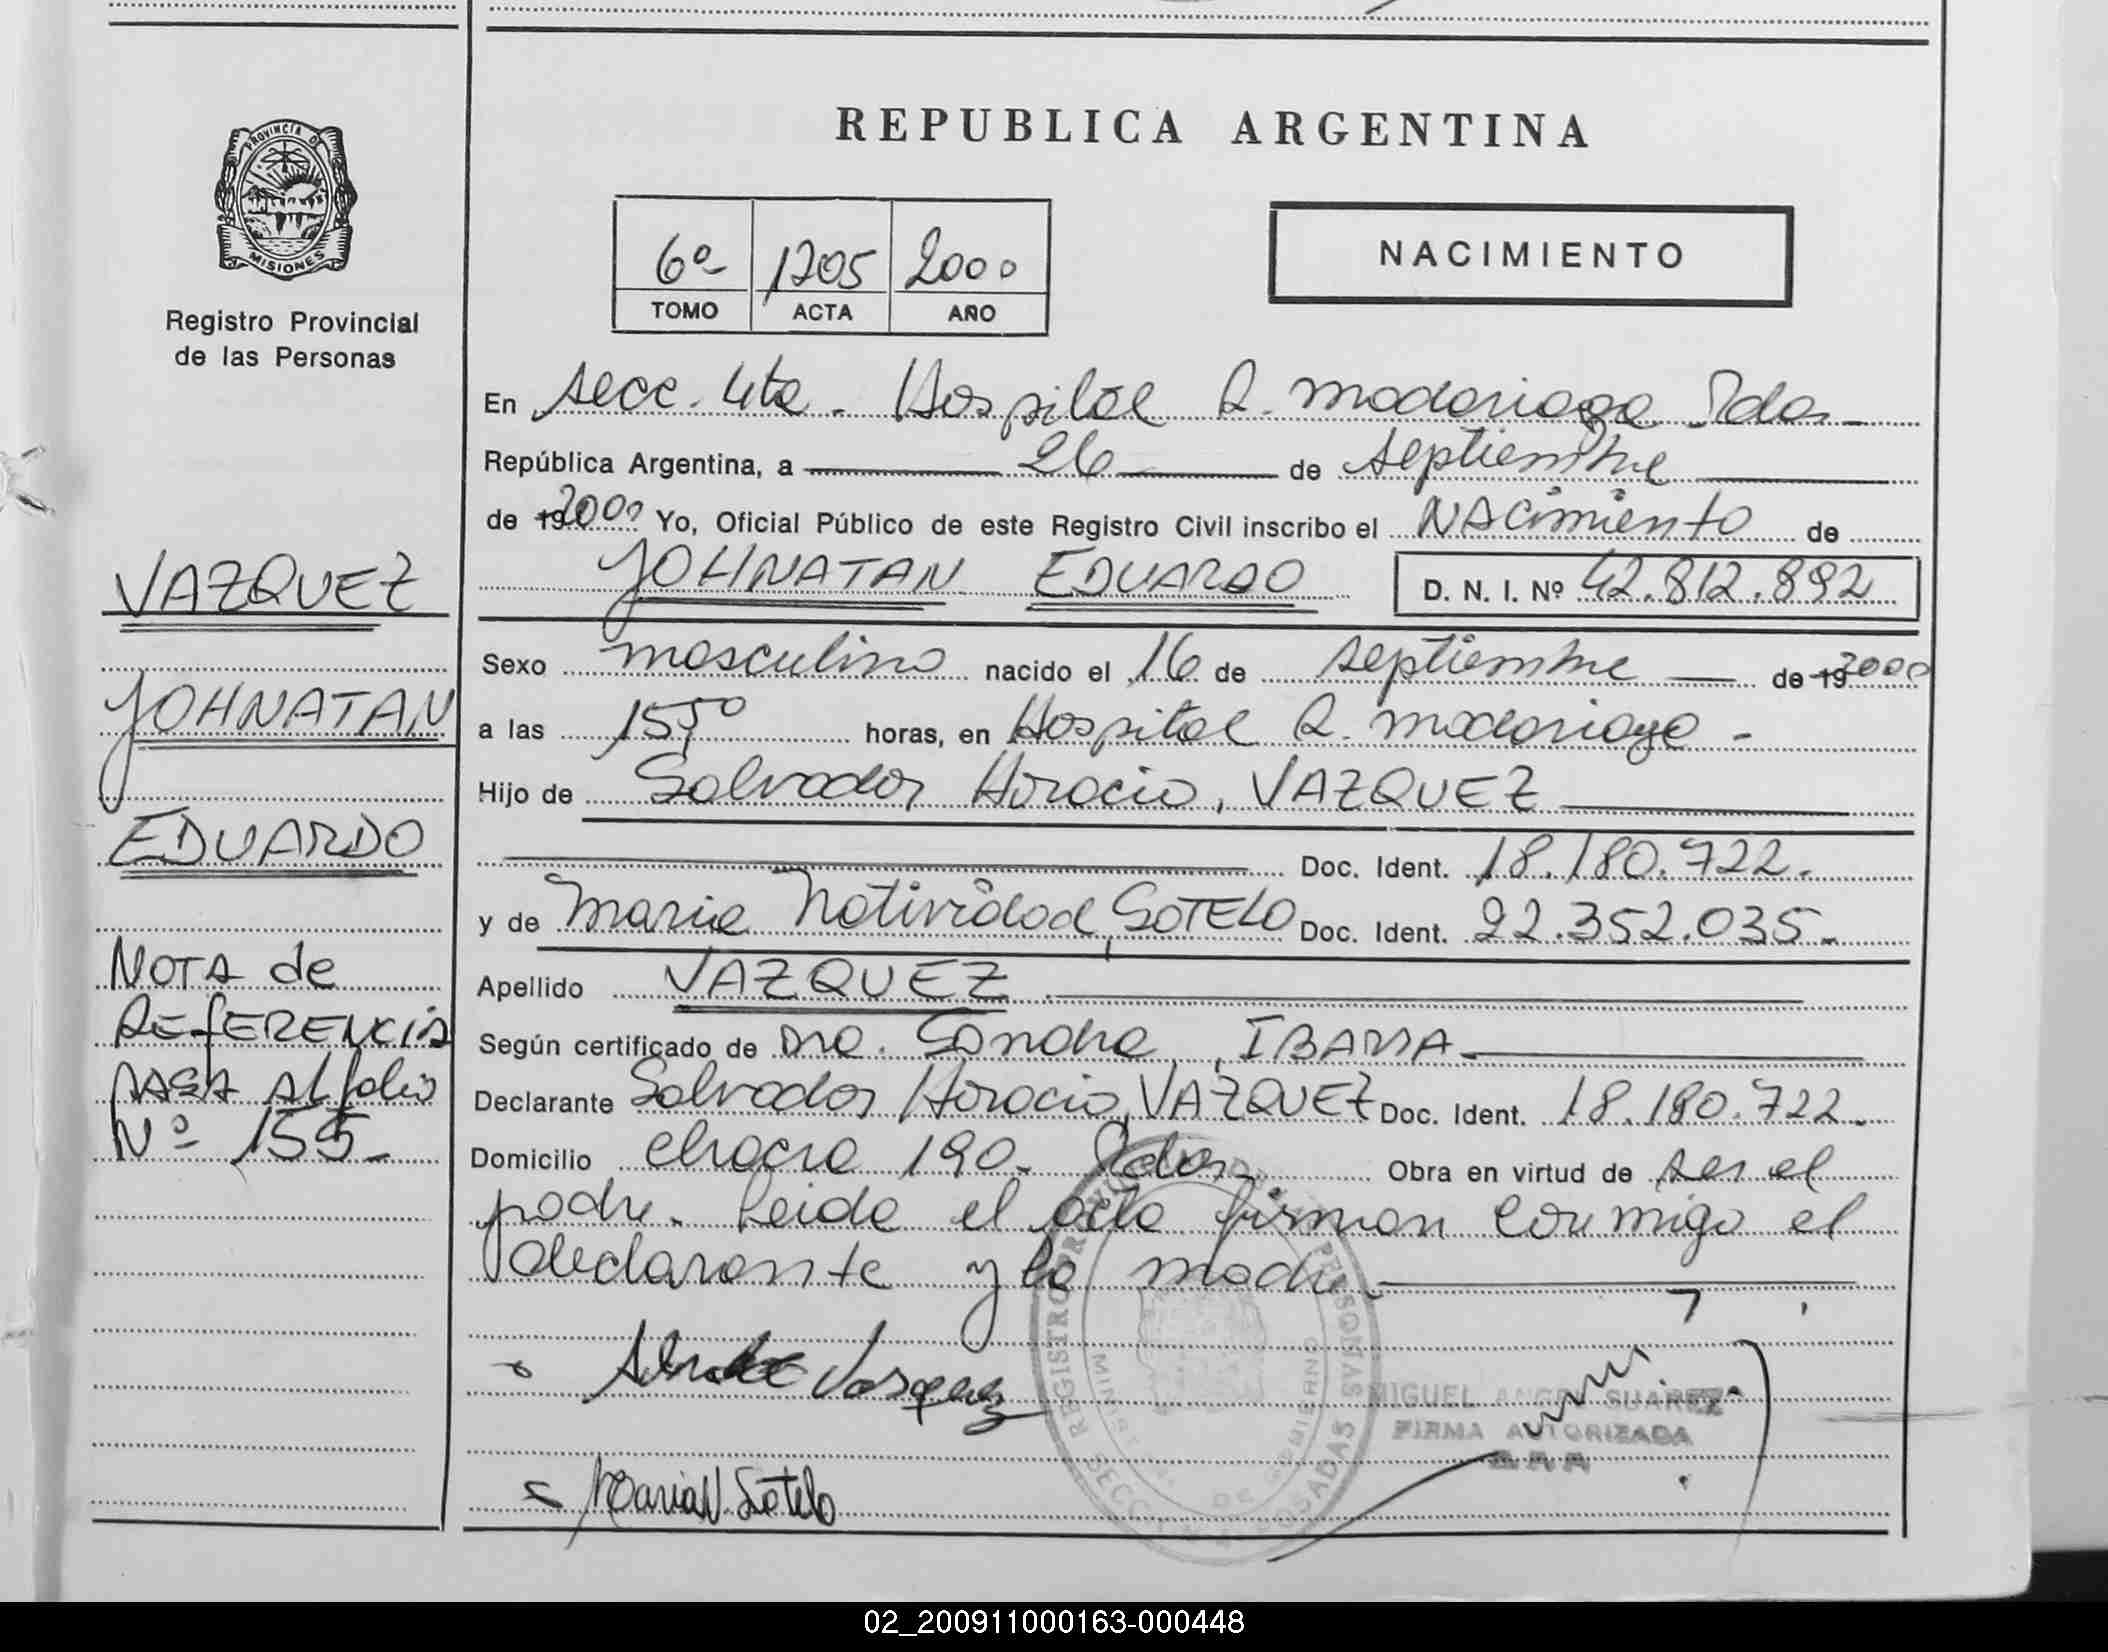 REPUBLICA ARGENTINA
PROVINCIA DE MISIONES
Registro Provincial
de las Personas
6º 1205 2000
TOMO ACTA AÑO
NACIMIENTO
En Secc. 4ta. Hospital R. Madariaga Pdas
República Argentina, a 26 de septiembre
de 19 2000 Yo, Oficial Público de este Registro Civil inscribo el NACimiento de
JOHNATAN EDUARDO D. N. I. Nº 42.812.892
Sexo masculino nacido el 16 de septiembre de 19 2000
a las 15,50 horas, en Hospital R. Madariaga -
Hijo de Salvador Horacio, VAZQUEZ
Doc. Ident. 18.180.722.
y de Maria Natividad, SOTELO Doc. Ident. 22.352.035.
Apellido VAZQUEZ
Según certificado de Dra. Sandra, IBARRA
Declarante Salvador Horacio, VAZQUEZ Doc. Ident. 18.180.722.
Domicilio chacra 190. Pdas. Obra en virtud de ser el
padre. Leida el acta firman conmigo el
declarante y la madre
Vasquez
Maria N. Sotelo
MIGUEL ANGEL SUAREZ
FIRMA AUTORIZADA
REGISTRO PROVINCIAL DE LAS PERSONAS
POSADAS
VAZQUEZ
JOHNATAN
EDUARDO
NOTA de
REfERENCIA
PASA Al folio
Nº 155-
02_200911000163-000448